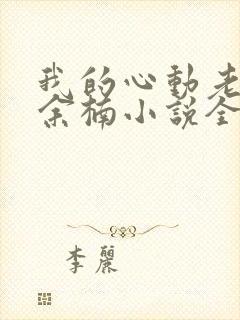 我的心動老
余楠小說全
李麗